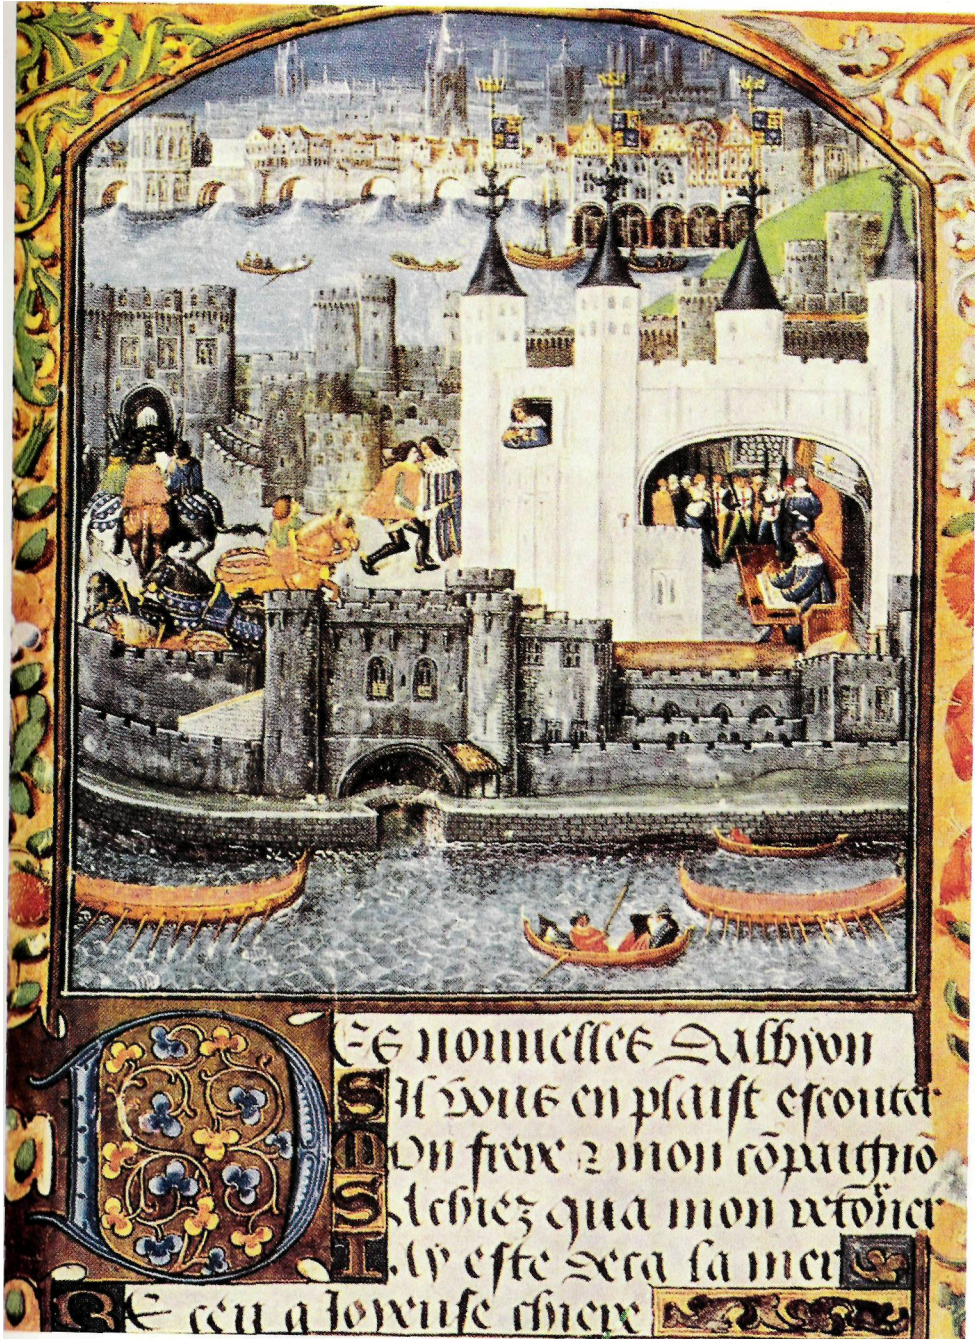 Des nouuelles dalbyon
Sil vous en plaist escouter
Mon frere ⁊ mon cōpaignō
Sachiez qua mon retoʳner
Iay este deca la mer
Receu a Ioyeuse chiere